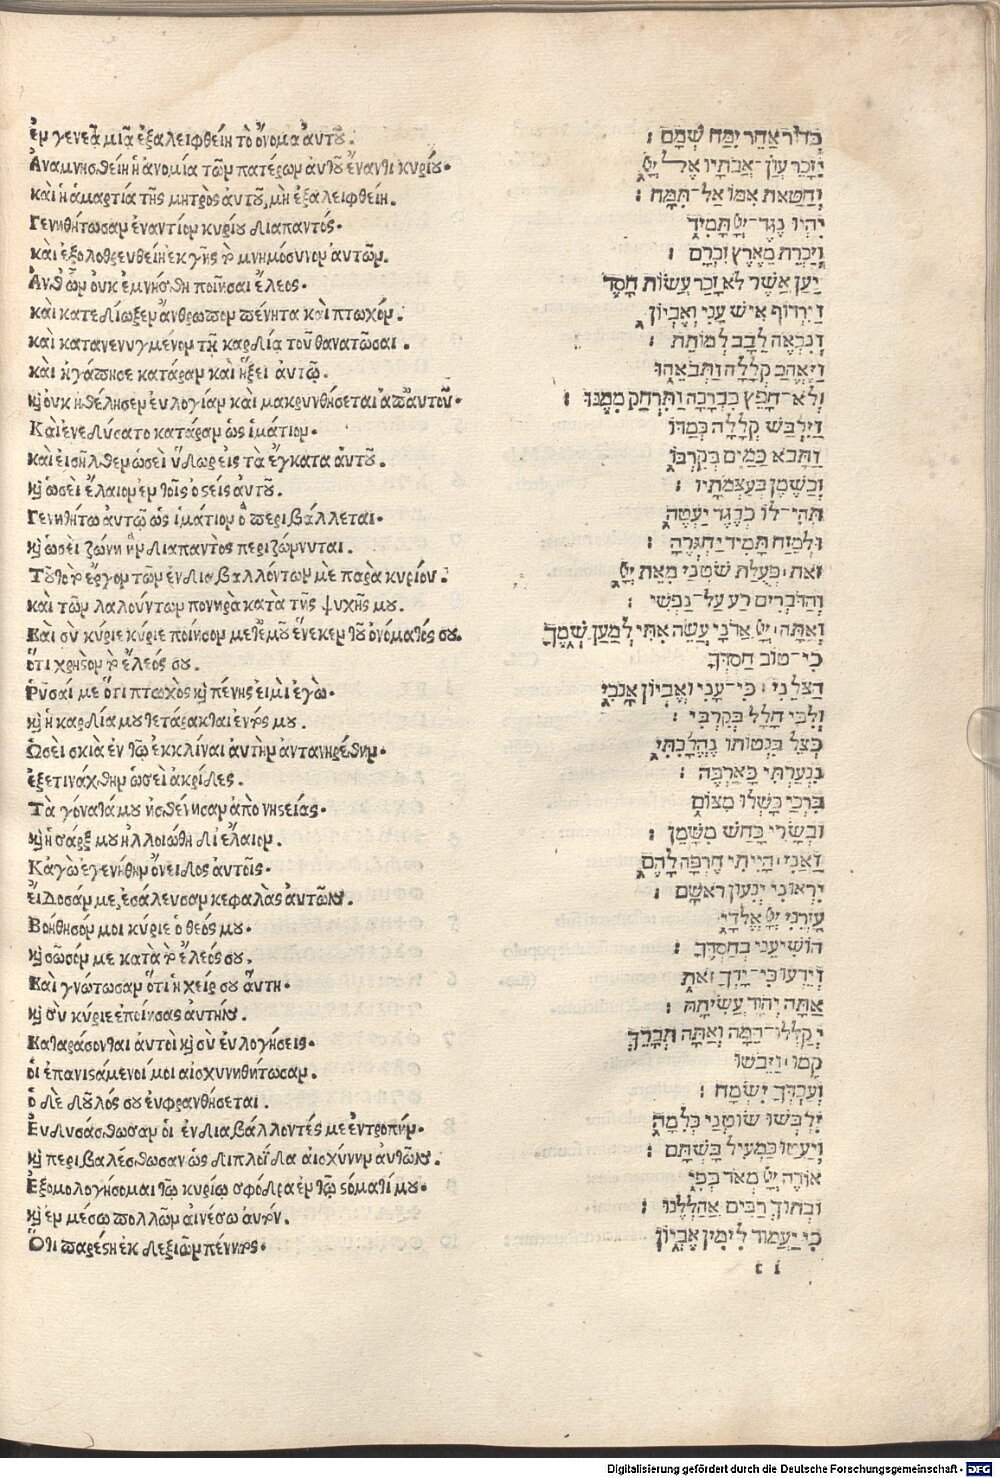 ἐν γενεᾷ μιᾷ ἐξαλειφθείη τὸ ὄνομα ἀυτοῦ.
Ἀναμνησθείη ἡ ἀνομία τῶν πατέρων ἀυτοῦ ἔναντι κυρίου.
καὶ ἡ ἁμαρτία τῆς μητρὸς ἀυτοῦ, μὴ ἐξαλειφθείη.
Γενηθήτωσαν ἐναντίον κυρίου διαπαντός.
καὶ ἐξολοθρευθείη ἐκ γῆς τὸ μνημόσυνον ἀυτῶν.
Ἀνθ ὧν ὀυκ ἐμνήσθη ποιῆσαι ἔλεος.
καὶ κατεδίωξεν ἄνθρωπον πένητα καὶ πτωχόν.
καὶ κατανενυγμένον τῇ καρδίᾳ τοῦ θανατῶσαι.
καὶ ἠγάπησε κατάραν καὶ ἥξει ἀυτῷ.
κὶ ὀυκ ἠθέλησεν ἐυλογίαν καὶ μακρυνθήσεται ἀπ ἀυτοῦ.
Καὶ ἐνεδύσατο κατάραν ὡς ἱμάτιον.
καὶ εἰσῆλθεν ὡσεὶ ὕδωρ εἰς τὰ ἔγκατα ἀυτοῦ.
κὶ ὡσεὶ ἔλαιον ἐν τοῖς ὀστέις ἀυτοῦ.
Γενηθήτω ἀυτῷ ὡς ἱμάτιον ὃ περιβάλλεται.
κὶ ὡσεὶ ζώνη ἣν διαπαντὸς περιζώννυται.
Τοῦτο τὸ ἔργον τῶν ἐνδιαβαλλόντων με παρὰ κυρίου.
καὶ τῶν λαλούντων πονηρὰ κατὰ τῆς ψυχῆς μου.
Καὶ σὺ κύριε κύριε ποίησον μετ ἐμοῦ ἕνεκεν τοῦ ὀνόματός σου.
ὅτι χρηστὸν τὸ ἔλεός σου.
Ῥῦσαί με ὅτι πτωχὸς κὶ πένης ἐιμὶ ἐγώ.
κὶ ἡ καρδία μου τετάρακται ἐντός μου.
Ὡσεὶ σκιὰ ἐν τῷ ἐκκλίναι ἀυτὴν ἀντανηρέθην.
ἐξετινάχθην ὡσεὶ ἀκρίδες.
Τὰ γόνατά μου ἠσθένησαν ἀπὸ νηστείας.
κὶ ἡ σάρξ μου ἠλλοιώθη δι ἔλαιον.
Κἀγὼ ἐγενήθην ὄνειδος ἀυτοῖς.
ἔιδοσάν με, ἐσάλευσαν κεφαλὰς ἀυτῶν.
Βοήθησόν μοι κύριε ὁ θεός μου.
κὶ σῶσόν με κατὰ τὸ ἔλεός σου.
Καὶ γνώτωσαν ὅτι ἡ χείρ σου ἅυτη.
κὶ σὺ κύριε ἐποίησας ἀυτήν.
Καταράσονται ἀυτοὶ κὶ σὺ ἐυλογήσεις.
ὁι ἐπανιστάμενοί μοι αἰσχυνθήτωσαν.
ὁ δὲ δοῦλός σου ἐυφρανθήσεται.
Ἐνδυσάσθωσαν ὁι ἐνδιαβάλλοντές με ἐντροπήν.
κὶ περιβαλέσθωσαν ὡς διπλοΐδα αἰσχύνην ἀυτῶν.
Ἐξομολογήσομαι τῷ κυρίῳ σφόδρα ἐν τῷ στόματί μου.
κὶ ἐν μέσῳ πολλῶν ἀινέσω ἀυτόν.
Ὅτι παρέστη ἐκ δεξιῶν πένητος.
בְּדוֹר אַחֵר יִמַּח שְׁמָם :
יִזָּכֵר עֲוֺן־אֲבֹתָיו אֶל־יְיָ
וְחַטַּאת אִמּוֹ אַל־תִּמָּח :
יִהְיוּ נֶגֶד־יְיָ תָּמִיד
וְיַכְרֵת מֵאֶרֶץ זִכְרָם :
יַעַן אֲשֶׁר לֹא זָכַר עֲשׂוֹת חָסֶד
וַיִּרְדּוֹף אִישׁ עָנִי וְאֶבְיוֹן
וְנִכְאֵה לֵבָב לְמוֹתֵת :
וַיֶּאֱהַב קְלָלָה וַתְּבֹאֵהוּ
וְלֹא־חָפֵץ בִּבְרָכָה וַתִּרְחַק מִמֶּנּוּ :
וַיִּלְבַּשׁ קְלָלָה כְּמַדּוֹ
וַתָּבֹא כַמַּיִם בְּקִרְבּוֹ
וְכַשֶּׁמֶן בְּעַצְמֹתָיו :
תְּהִי־לוֹ כְּבֶגֶד יַעְטֶה
וּלְמֵזַח תָּמִיד יַחְגְּרֶהָ :
זֹאת פְּעֻלַּת שֹׂטְנַי מֵאֵת יְיָ
וְהַדֹּבְרִים רָע עַל־נַפְשִׁי :
וְאַתָּה יְיָ אֲדֹנָי עֲשֵׂה אִתִּי לְמַעַן שְׁמֶךָ
כִּי־טוֹב חַסְדְּךָ
הַצִּלֵנִי כִּי־עָנִי וְאֶבְיוֹן אָנֹכִי
וְלִבִּי חָלַל בְּקִרְבִּי :
כְּצֵל כִּנְטוֹתוֹ נֶהֱלָכְתִּי
נִנְעַרְתִּי כָּאַרְבֶּה :
בִּרְכַּי כָּשְׁלוּ מִצּוֹם
וּבְשָׂרִי כָּחַשׁ מִשָּׁמֶן :
וַאֲנִי הָיִיתִי חֶרְפָּה לָהֶם
יִרְאוּנִי יְנִעוּן רֹאשָׁם :
עָזְרֵנִי יְיָ אֱלֹהָי
הוֹשִׁיעֵנִי כְחַסְדֶּךָ :
וְיֵדְעוּ כִּי־יָדְךָ זֹּאת
אַתָּה יְהוָה עֲשִׂיתָהּ :
יְקַלְלוּ־הֵמָּה וְאַתָּה תְבָרֵךְ
קָמוּ וַיֵּבֹשׁוּ
וְעַבְדְּךָ יִשְׂמָח :
יִלְבְּשׁוּ שׂוֹטְנַי כְּלִמָּה
וְיַעֲטוּ כַמְעִיל בָּשְׁתָּם :
אוֹדֶה יְיָ מְאֹד בְּפִי
וּבְתוֹךְ רַבִּים אֲהַלְלֶנּוּ :
כִּי יַעֲמוֹד לִימִין אֶבְיוֹן
t i
Digitalisierung gefördert durch die Deutsche Forschungsgemeinschaft - DFG